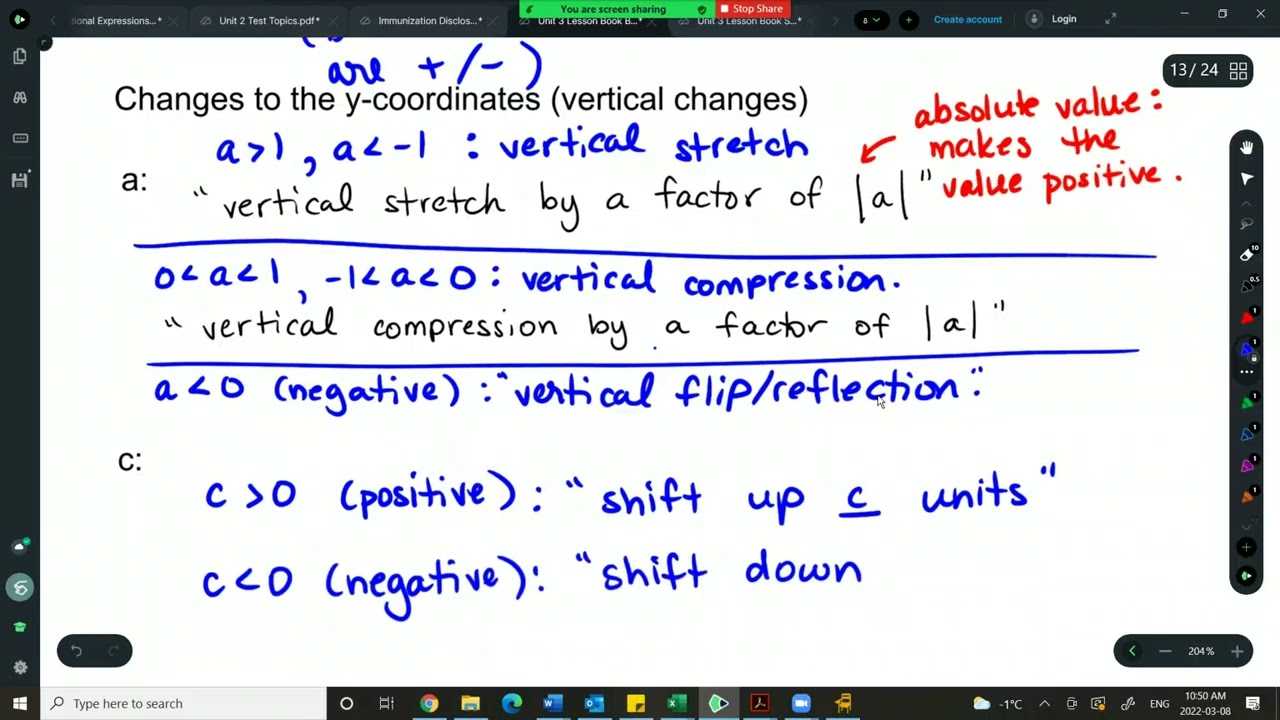 tional Expressions...* Unit 2 Test Topics.pdf* Immunization Disclos...* Unit 3 Lesson Book B...* Unit 3 Lesson Book S...*
You are screen sharing Stop Share
8 Create account Login
are + / - )
13 / 24
Changes to the y-coordinates (vertical changes)
absolute value:
makes the
value positive.
a > 1, a < -1 : vertical stretch
a:
"vertical stretch by a factor of |a|"
0 < a < 1, -1 < a < 0 : vertical compression.
"vertical compression by a factor of |a|"
a < 0 (negative) : "vertical flip/reflection"
c:
c > 0 (positive) : "shift up c units"
c < 0 (negative) : "shift down
204%
Type here to search
-1°C ENG
10:50 AM
2022-03-08